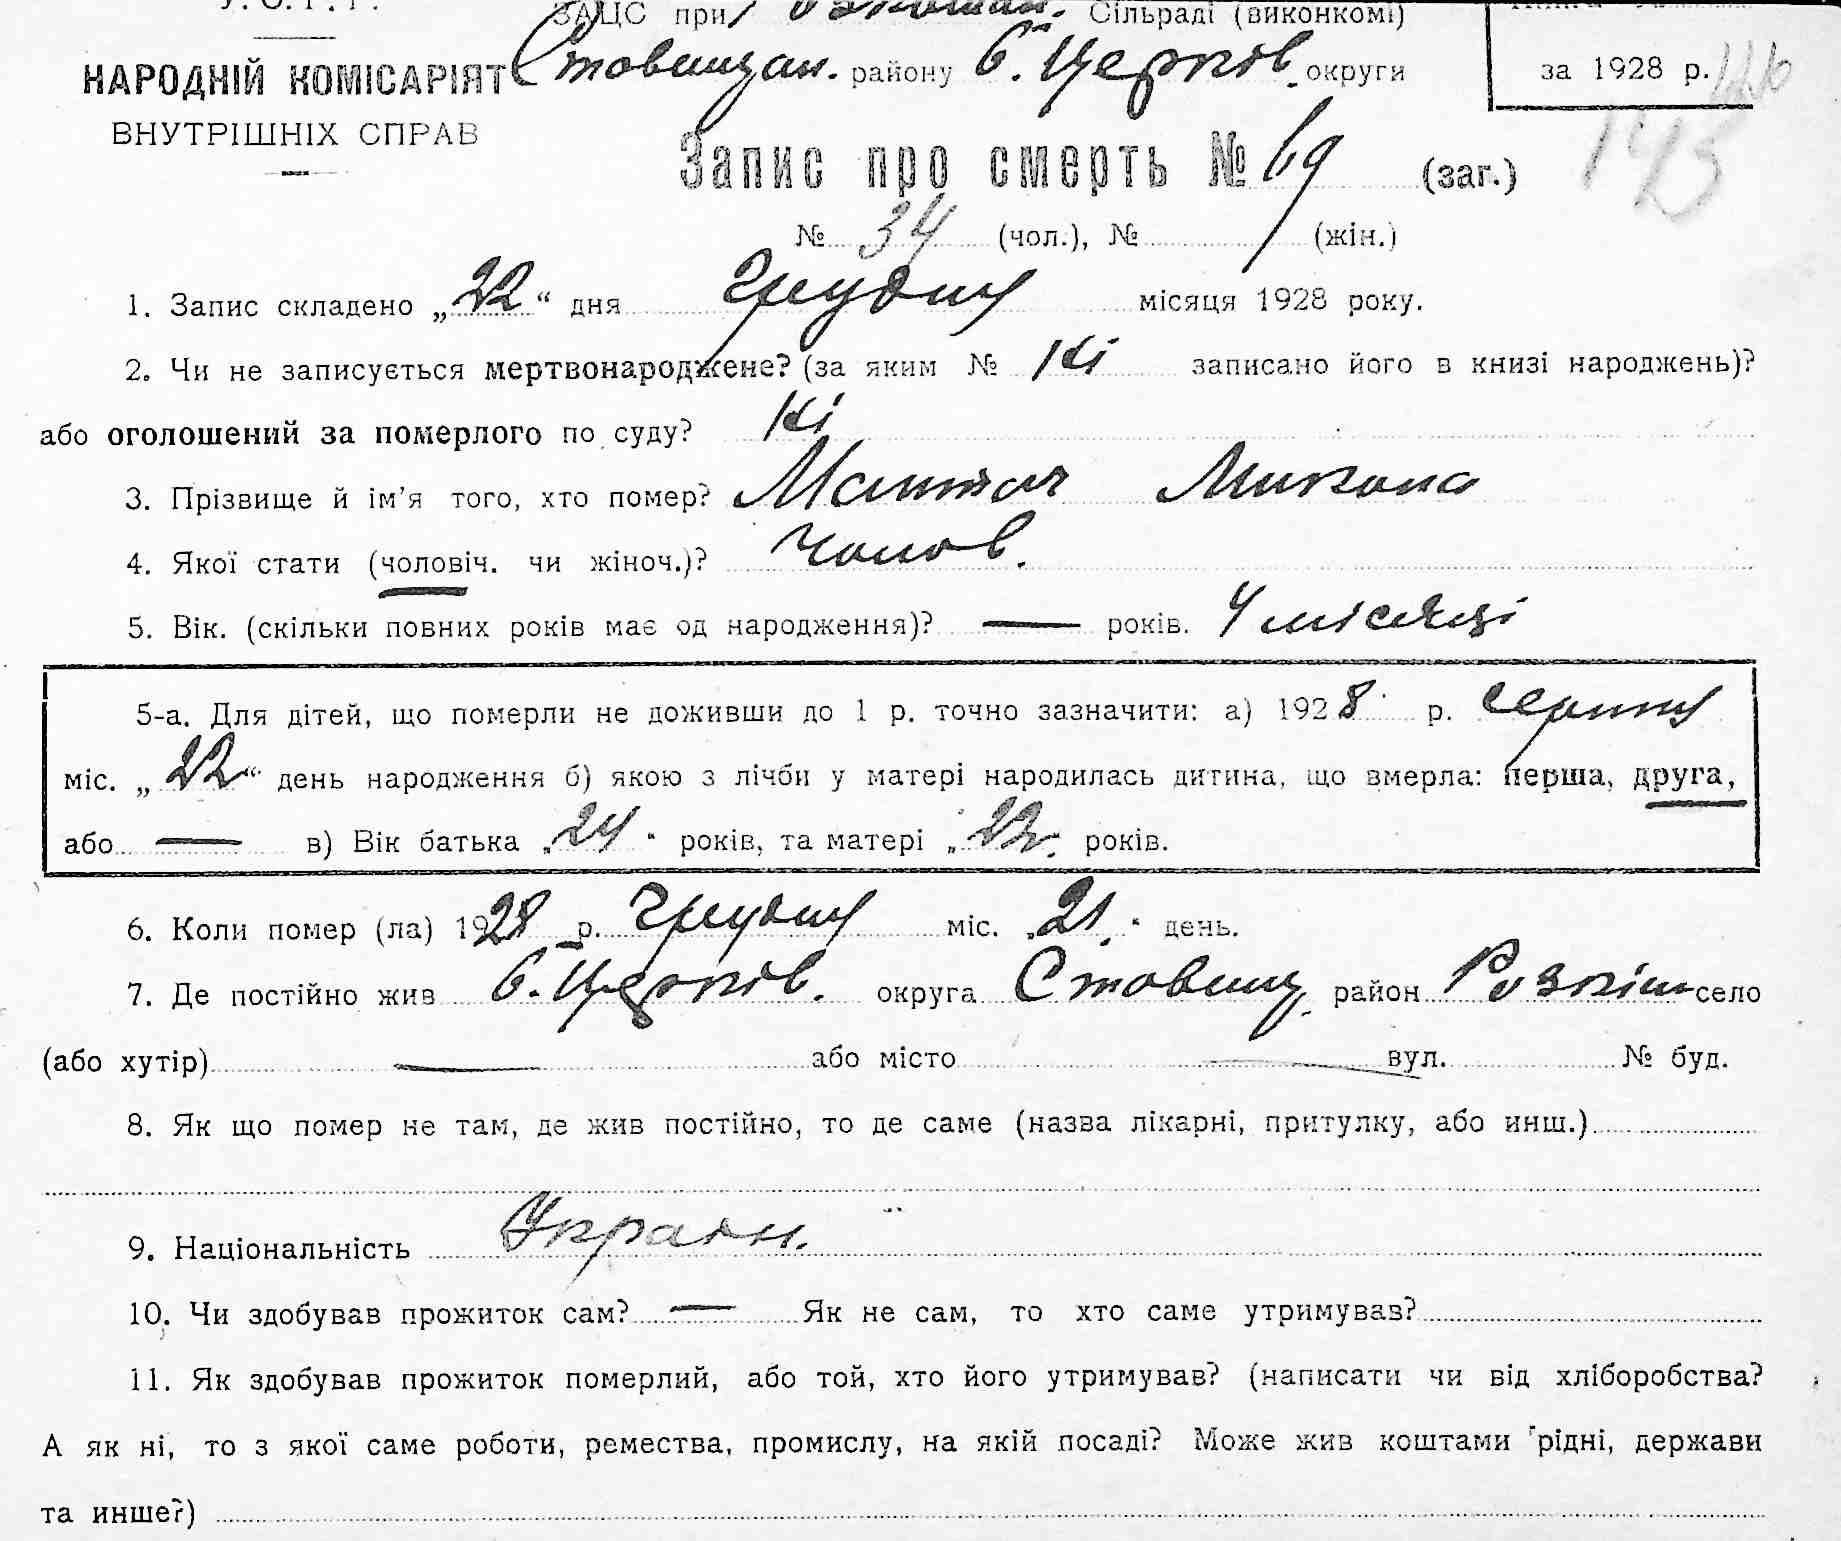 ЗАЦС при Розкошан. Сільраді (виконкомі)
НАРОДНІЙ КОМІСАРІЯТ Ставищан. району Б. Церків. округи
за 1928 р.
ВНУТРІШНІХ СПРАВ
Запис про смерть № 69 (заг.)
143
№ 34 (чол.), № (жін.)
1. Запис складено „22“ дня Грудня місяця 1928 року.
2. Чи не записується мертвонароджене? (за яким № Ні записано його в книзі народжень)?
або оголошений за померлого по суду? Ні
3. Прізвище й ім’я того, хто помер? Микола
4. Якої стати (чоловіч. чи жіноч.)? Чолов.
5. Вік. (скільки повних років має од народження)? — років. 4 місяці
5-а. Для дітей, що померли не доживши до 1 р. точно зазначити: а) 1928 р. Серпня
міс. „22“ день народження б) якою з лічби у матері народилась дитина, що вмерла: перша, друга,
або — в) Вік батька „24“ років, та матері „22“ років.
6. Коли помер (ла) 1928 р. Грудня міс. „21“ день.
7. Де постійно жив Б. Церків. округа Ставищ. район Розкіш село
(або хутір) — або місто — вул. № буд.
8. Як що помер не там, де жив постійно, то де саме (назва лікарні, притулку, або инш.)
9. Національність Україн.
10. Чи здобував прожиток сам? — Як не сам, то хто саме утримував?
11. Як здобував прожиток померлий, або той, хто його утримував? (написати чи від хліборобства?
А як ні, то з якої саме роботи, ремества, промислу, на якій посаді? Може жив коштами рідні, держави
та инше?)